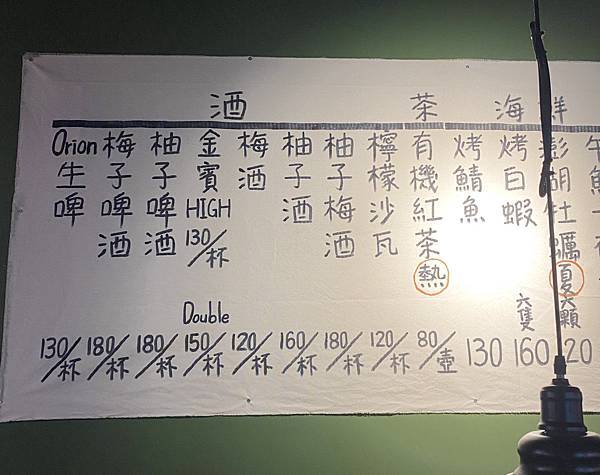 酒
Orion生啤 130/杯
梅子啤酒 180/杯
柚子啤酒 180/杯
金賓HIGH 130/杯 Double 150/杯
梅酒 120/杯
柚子酒 160/杯
柚子梅酒 180/杯
檸檬沙瓦 120/杯
茶
有機紅茶 熱 80/壺
海鮮
烤鯖魚 130
烤白蝦 六隻 160
澎湖牡蠣 夏 六顆